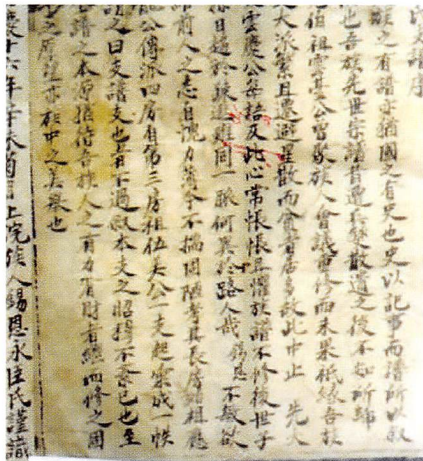 支譜序
族之有譜亦猶國之有史也史以記事而譜所以敘
也吾族先世宗譜有遭兵燹散遺之後不知所歸
伯祖雲臺公曾聚族人會議重修而未果祇緣吾族
大派繁且遷避星散而貧者居多故此中止 先大
雲慶公每語及此心常悵悵且懼族譜不修後世子
日趨於疎遠雖同一脈何異於路人哉 錫恩不敏欲
前人之志自愧力薄今不揣固陋考其長房祖應
龍公傳派四房有第三房祖伍美公一支起彙成一帙
謂之曰支譜支也者不過敘本支之昭穆不紊已也至
譜之本源惟待吾族人之有力有財者繼而修之固
之厚望亦族中之美舉也
慶十六年辛未酉月上浣族人錫恩永臣氏謹識